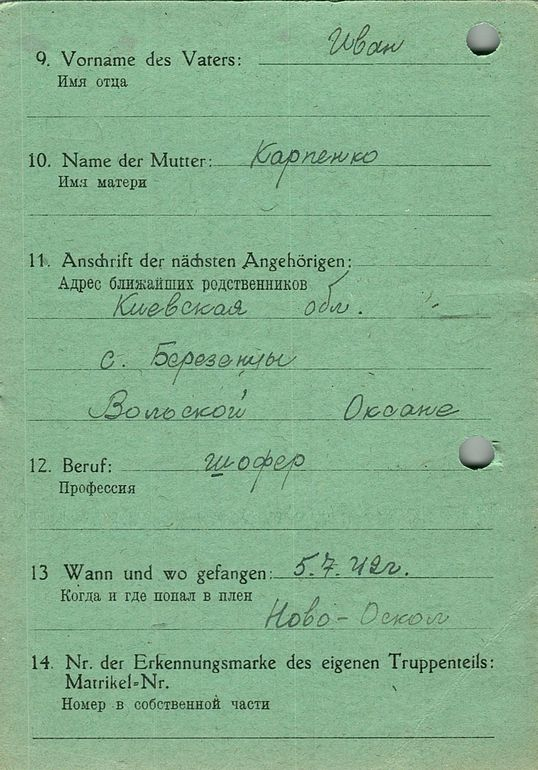 Иван
9. Vorname des Vaters:
Имя отца
10. Name der Mutter: Карпенко
Имя матери
11. Anschrift der nächsten Angehörigen:
Адрес ближайших родственников
Киевская обл.
с. Березанцы
Вольской Оксане
12. Beruf: шофер
Профессия
13 Wann und wo gefangen: 5.7.42г.
Когда и где попал в плен
Ново-Оскол
14. Nr. der Erkennungsmarke des eigenen Truppenteils:
Matrikel-Nr.
Номер в собственной части